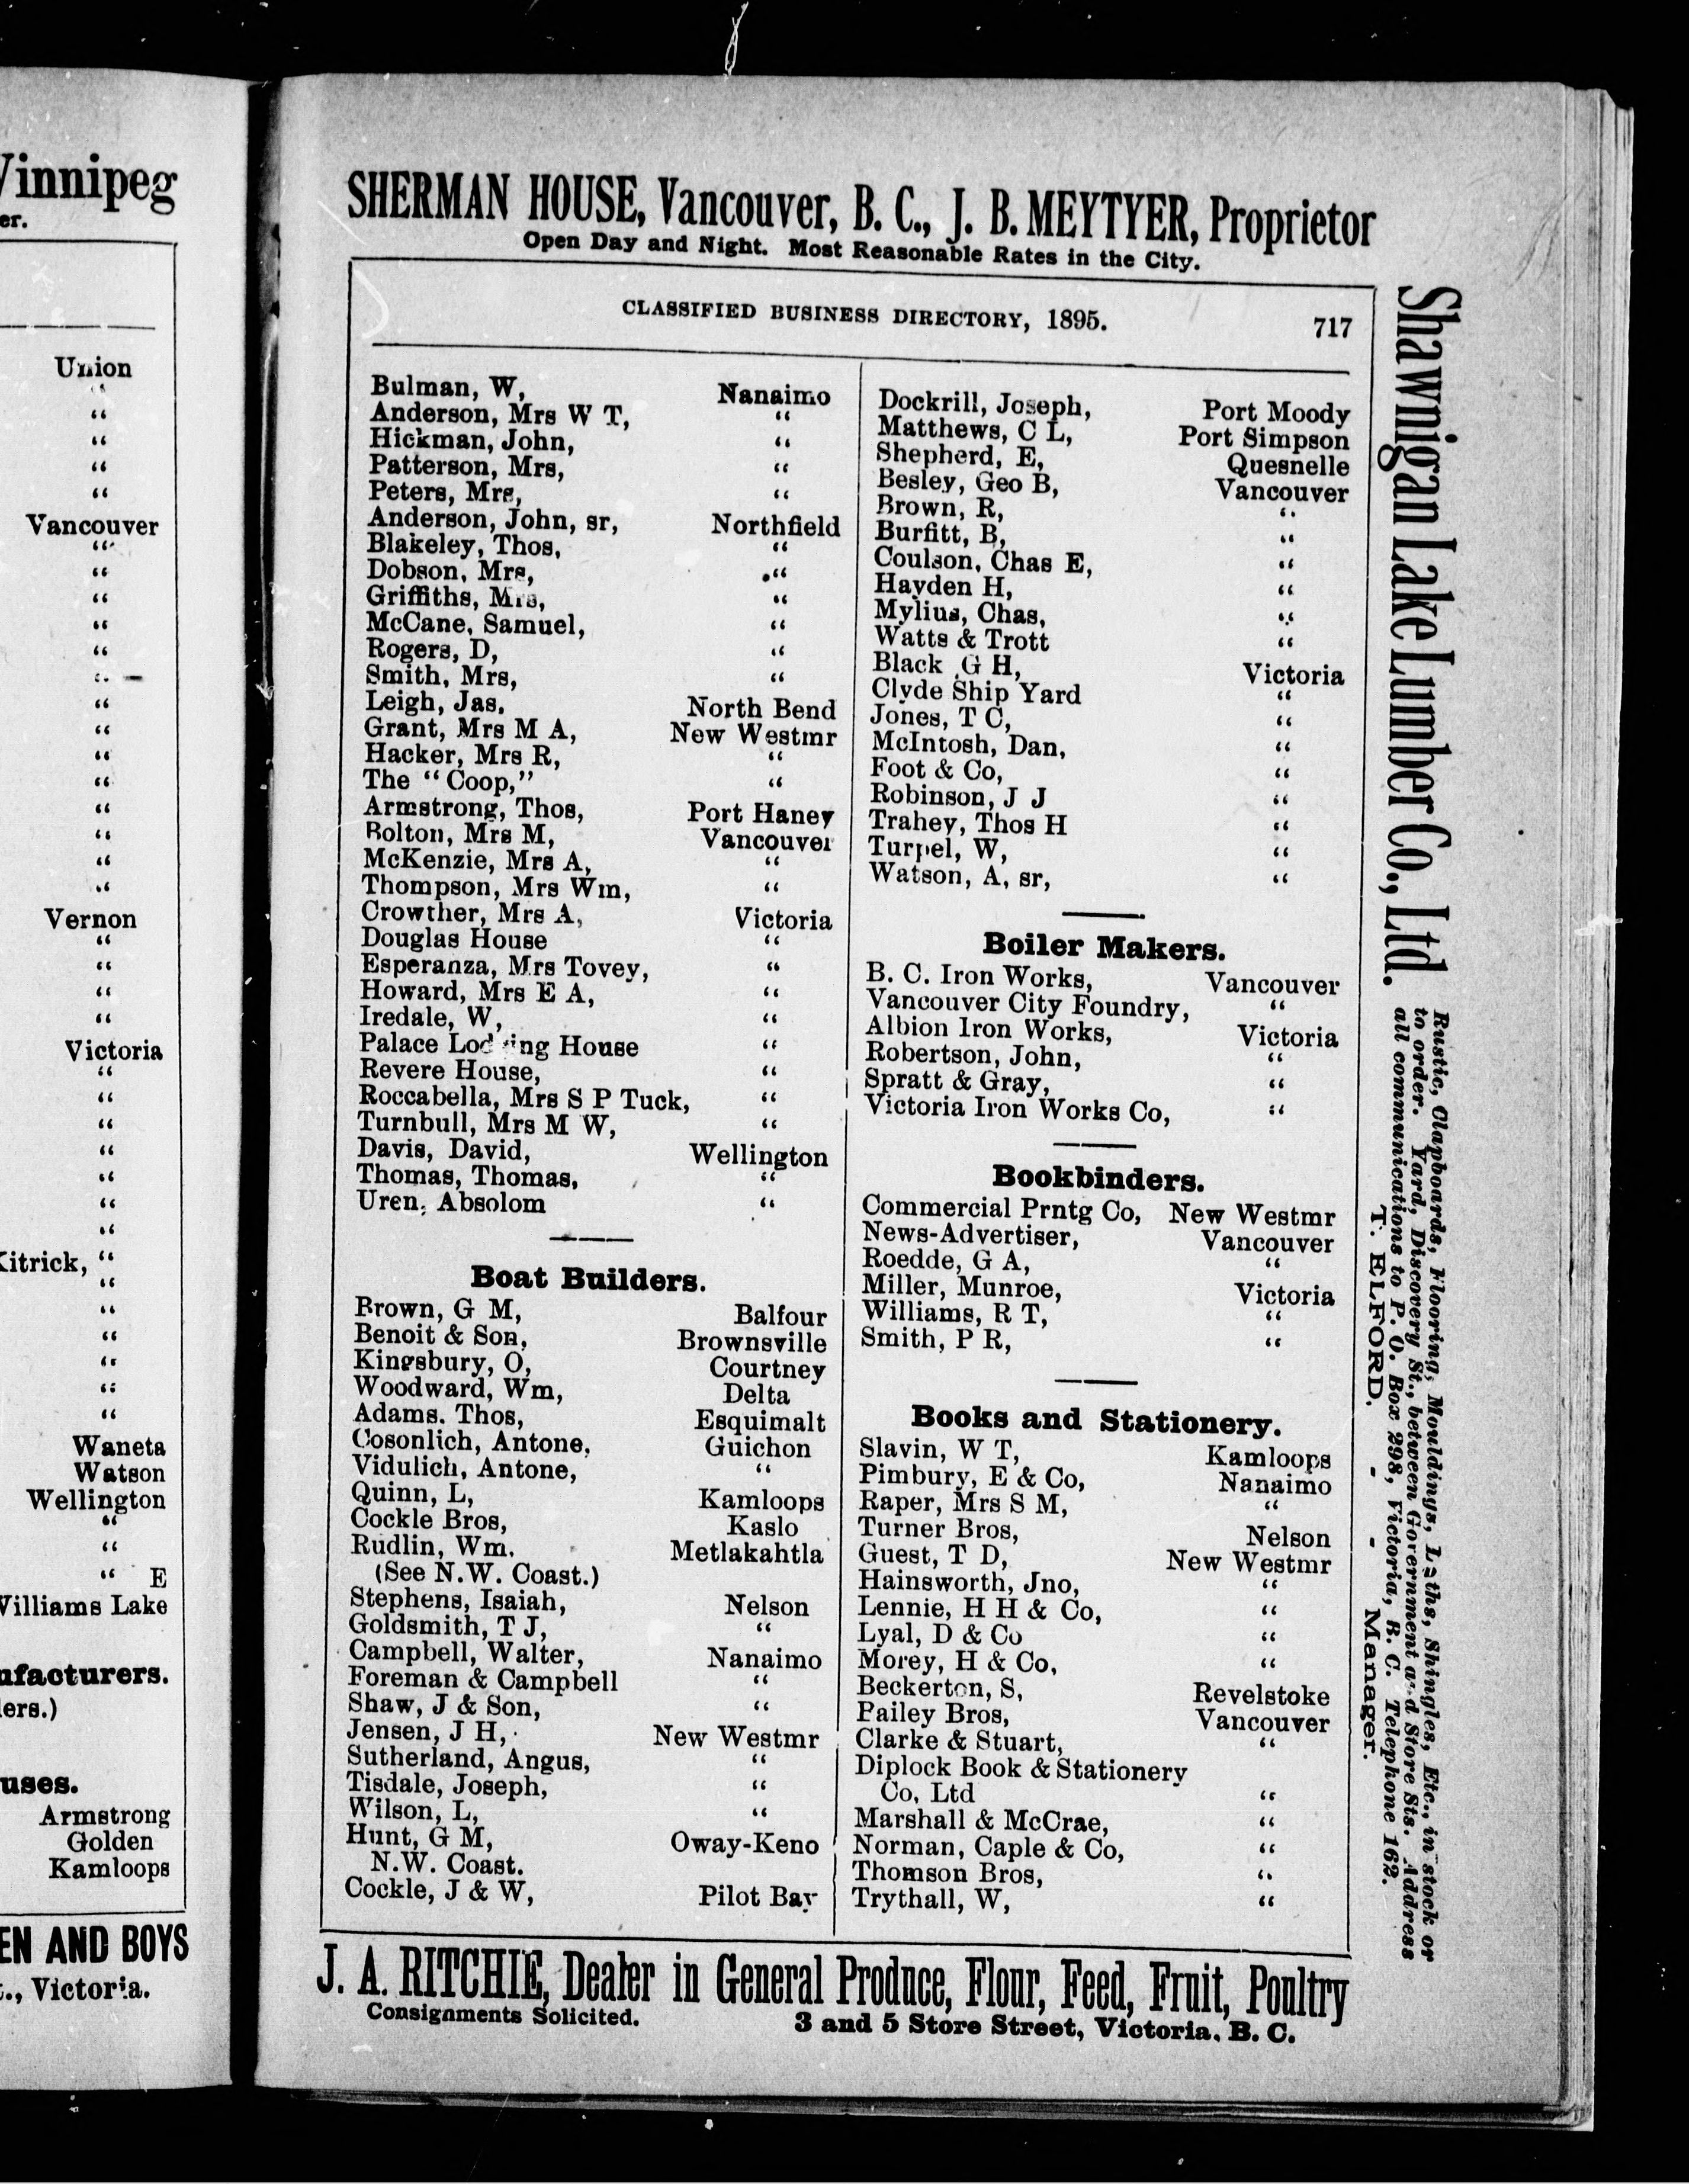 Winnipeg
er.
Union
“
“
“
“
“
Vancouver
“
“
“
“
“
“
“
“
“
“
“
“
“
“
Vernon
“
“
“
“
Victoria
“
“
“
“
“
“
“
Kitrick, “
“
“
“
“
“
“
Waneta
Watson
Wellington
“
“
“ E
Williams Lake
ufacturers.
lers.)
uses.
Armstrong
Golden
Kamloops
EN AND BOYS
t., Victoria.
SHERMAN HOUSE, Vancouver, B. C., J. B. MEYTYER, Proprietor
Open Day and Night. Most Reasonable Rates in the City.
CLASSIFIED BUSINESS DIRECTORY, 1895. 717
Bulman, W, Nanaimo
Anderson, Mrs W T, “
Hickman, John, “
Patterson, Mrs, “
Peters, Mrs, “
Anderson, John, sr, Northfield
Blakeley, Thos, “
Dobson, Mrs, “
Griffiths, Mrs, “
McCane, Samuel, “
Rogers, D, “
Smith, Mrs, “
Leigh, Jas, North Bend
Grant, Mrs M A, New Westmr
Hacker, Mrs R, “
The “Coop,” “
Armstrong, Thos, Port Haney
Bolton, Mrs M, Vancouver
McKenzie, Mrs A, “
Thompson, Mrs Wm, “
Crowther, Mrs A, Victoria
Douglas House “
Esperanza, Mrs Tovey, “
Howard, Mrs E A, “
Iredale, W, “
Palace Lodging House “
Revere House, “
Roccabella, Mrs S P Tuck, “
Turnbull, Mrs M W, “
Davis, David, Wellington
Thomas, Thomas, “
Uren, Absolom “
Boat Builders.
Brown, G M, Balfour
Benoit & Son, Brownsville
Kingsbury, O, Courtney
Woodward, Wm, Delta
Adams, Thos, Esquimalt
Cosonlich, Antone, Guichon
Vidulich, Antone, “
Quinn, L, Kamloops
Cockle Bros, Kaslo
Rudlin, Wm, Metlakahtla
(See N.W. Coast.)
Stephens, Isaiah, Nelson
Goldsmith, T J, “
Campbell, Walter, Nanaimo
Foreman & Campbell “
Shaw, J & Son, “
Jensen, J H, New Westmr
Sutherland, Angus, “
Tisdale, Joseph, “
Wilson, L, “
Hunt, G M, Oway-Keno
N.W. Coast.
Cockle, J & W, Pilot Bay
Dockrill, Joseph, Port Moody
Matthews, C L, Port Simpson
Shepherd, E, Quesnelle
Besley, Geo B, Vancouver
Brown, R, “
Burfitt, B, “
Coulson, Chas E, “
Hayden H, “
Mylius, Chas, “
Watts & Trott “
Black G H, Victoria
Clyde Ship Yard “
Jones, T C, “
McIntosh, Dan, “
Foot & Co, “
Robinson, J J “
Trahey, Thos H “
Turpel, W, “
Watson, A, sr, “
Boiler Makers.
B. C. Iron Works, Vancouver
Vancouver City Foundry, “
Albion Iron Works, Victoria
Robertson, John, “
Spratt & Gray, “
Victoria Iron Works Co, “
Bookbinders.
Commercial Prntg Co, New Westmr
News-Advertiser, Vancouver
Roedde, G A, “
Miller, Munroe, Victoria
Williams, R T, “
Smith, P R, “
Books and Stationery.
Slavin, W T, Kamloops
Pimbury, E & Co, Nanaimo
Raper, Mrs S M, “
Turner Bros, Nelson
Guest, T D, New Westmr
Hainsworth, Jno, “
Lennie, H H & Co, “
Lyal, D & Co “
Morey, H & Co, “
Beckerton, S, Revelstoke
Pailey Bros, Vancouver
Clarke & Stuart, “
Diplock Book & Stationery
Co, Ltd “
Marshall & McCrae, “
Norman, Caple & Co, “
Thomson Bros, “
Trythall, W, “
Shawnigan Lake Lumber Co., Ltd.
Rustic, Clapboards, Flooring, Mouldings, Laths, Shingles, Etc., in stock or
to order. Yard, Discovery St., between Government and Store Sts. Address
all communications to P. O. Box 298, Victoria, B. C. Telephone 162.
T. ELFORD, - - Manager.
J. A. RITCHIE, Dealer in General Produce, Flour, Feed, Fruit, Poultry
Consignments Solicited. 3 and 5 Store Street, Victoria, B. C.